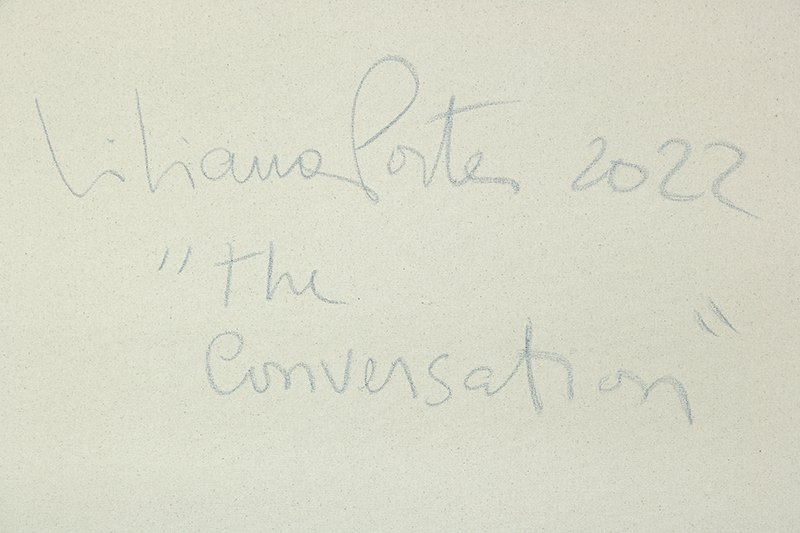 Liliana Porter 2022
"The
Conversation"